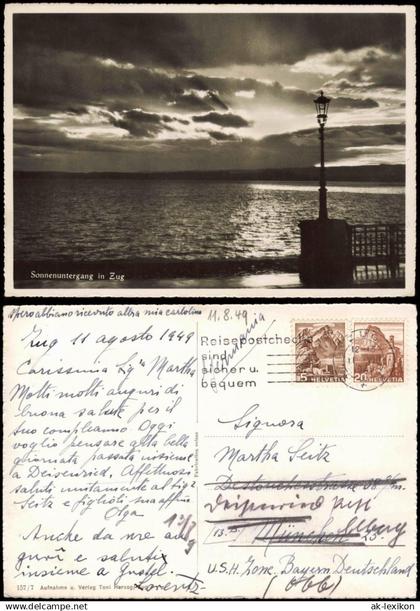 Sonnenuntergang in Zug
Spero abbiano ricevuto altra mia cartolina
Zug 11 agosto 1949
Carissima Sig.ra Martha
Molti molti auguri di
buona salute per il
suo compleanno Oggi
voglio pensare alla bella
giornata passata insieme
a Deisenried. Affettuosi
saluti unitamente al Sig.
Seitz e figlioli sua aff.ma
Olga
Anche da me au
guri e saluti
insieme a
Lorenz
13/8 49
157/7 Aufnahme u. Verlag Toni Herzog
11.8.49
Germania
Reisepostchecks
sind
sicher u.
bequem
5 HELVETIA
20 HELVETIA
Signora
Martha Seitz
München
U.S.H. Zone, Bayern Deutschland
(Obb)
© ak-lexikon.de
http://www.ak-lexikon.de